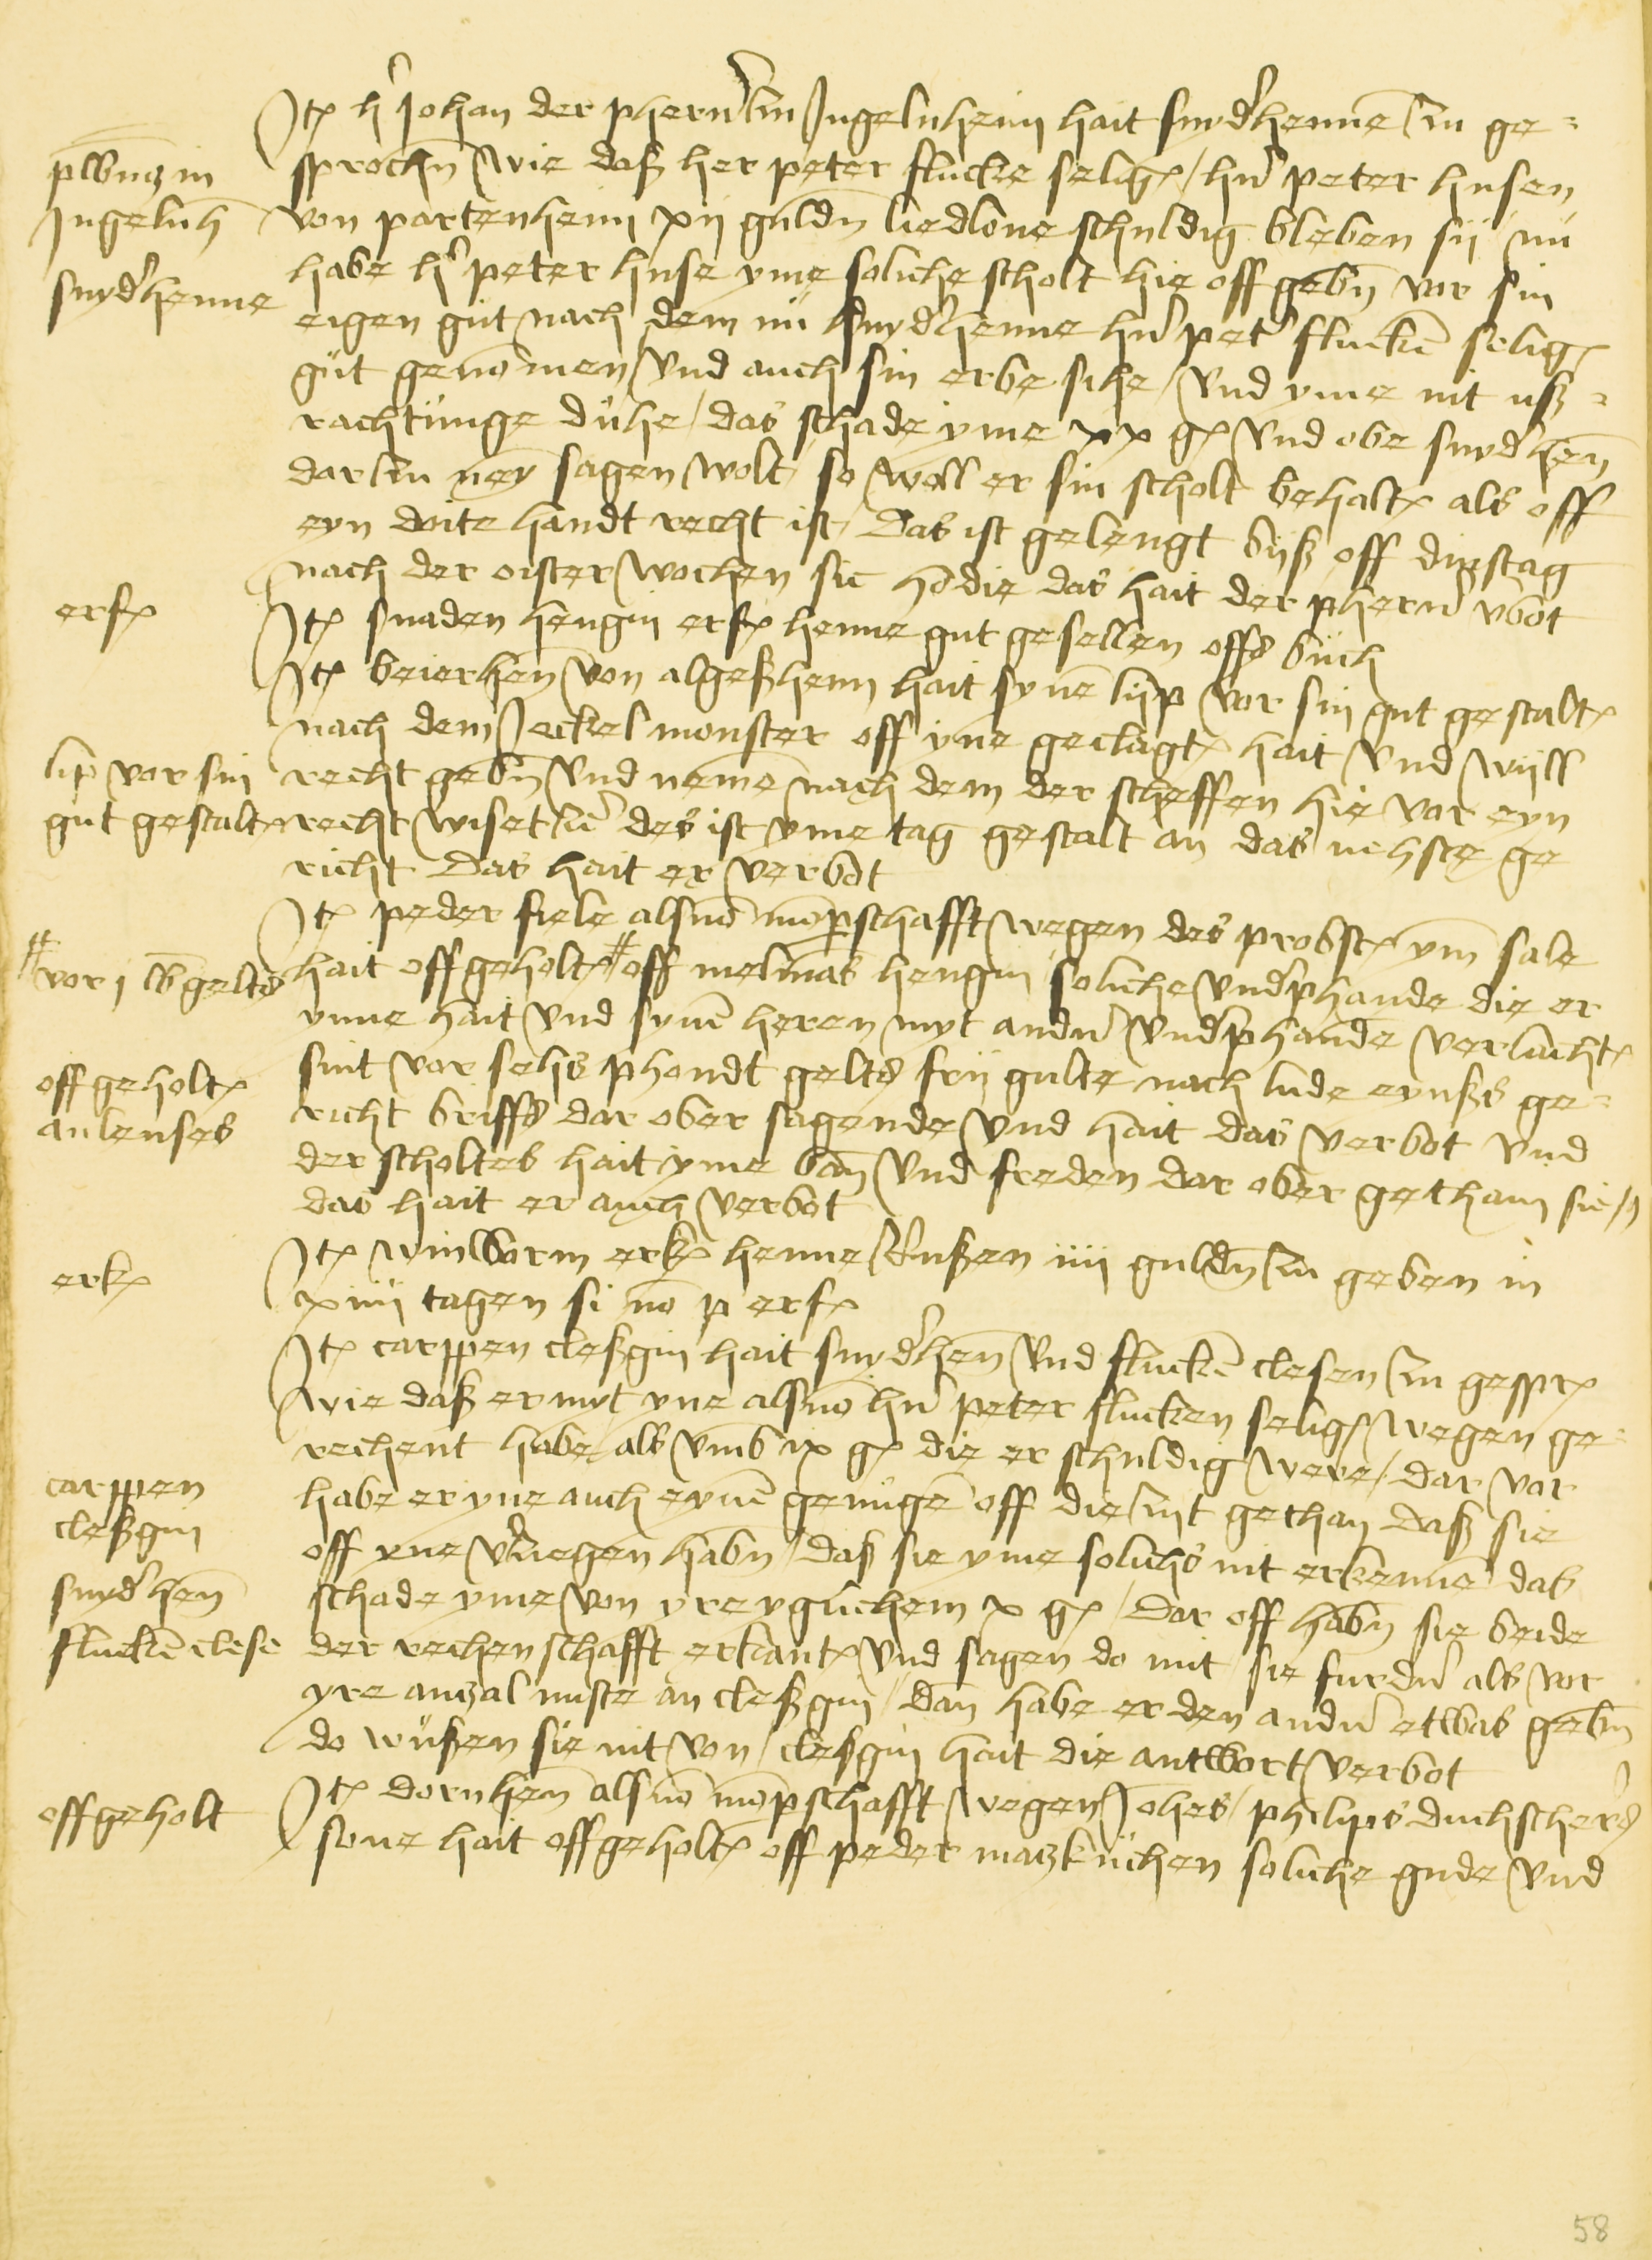 Jt(em) h(er) Johan der pherner zu Jngelnheim hait snyd(er)henne zu ge-
plbnus in
Jngelnh(eim)
snyd(er)henne
sprochen wie daß her peter flucke selige / hern peter husen
von partenheim xij gulden liedlone schuldig bleben sij / nu
habe h(er) peter huse yme soliche scholt hie off geben vor sin
eigen gut nach dem nu snyd(er)henne hern pet(er) flucken selig(en)
gut genomen und auch sin erbe sihe / und yme nit uß-
rachtunge duhe / das schade yme xx g(ulden) und obe snyd(er)hen
dar zu ney sagen wolt / so woll er sin scholt behalt(en) als off
eyn doite handt recht ist / Das ist gelengt biß off dinstag
nach der oister wochen sic hodie das hait der pherner v(er)bot
erf(elt)
Jt(em) snaden hengin erf(elt) henne gut gesellen offs buch
Jt(em) beierhen von algeßheim hait synen lijp vor sin gut gestalt
nach dem Jeckel monster off yne geclagt hait und wijll
lip vor sin
gut gestalt
recht geben und nemen nach dem der scheffen hie vor eyn
recht wiset ut(er) des ist yme tag gestalt an das nehste ge
richt Das hait er verbot
Jt(em) peder fiele als von mompschafft wegen des probst ym sale
# vor j lb gelts
hait offgeholt # off melmans hengin / soliche und(er)phande die er
ynne hait und synen heren myt andern und(er)phande verlacht
offgeholt
anlenses
sint vor sehs phondt gelts frij gulte nach lude eynßs ge-
richt briffs dar ober sagende und hait das verbot und
der scholtes hait yme ban und freden dar ober gethain sic /
das hait er auch verbot
erk(ent)
Jt(em) winworm erk(ent) henne Rußen iiij gulden zu geben in
xiiij tagen si no(n) p erf(elt)
Jt(em) carppen cleßgin hait snyd(er)hen und flucken clesen zu gespr(ochen)
wie daß er myt yne als von hern peter flucken selig(en) wegen ge-
rechent habe / als umb ix g(ulden) die er schuldig were / dar vor
carppen
cleßgin
snyd(er)hen
flucken clese
habe er yne auch eynen genugen off die zijt gethan daß sie
off yne v(er)ziegen haben / daß sie yme solichs nit erkennen das
schade yme von yr eyglichem x g(ulden) / dar off haben sie beide
der rechenschafft erkant und sagen do mit / sie furdern als vor
yre anzal nuste an cleßgin / dan habe er den andern etwas geben
do wußen sie nit von / cleßgin hait die antwort verbot
offgeholt
Jt(em) dornhen als von momp(er)schafft wegen Johes / philips duchscherers
sone hait offgeholt off peder matzkuchen soliche gude und
58